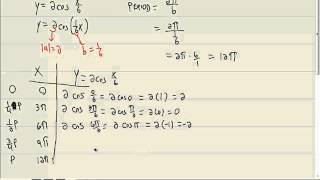 y = 2cos x/6
y = 2cos(1/6 x)
|a| = 2 b = 1/6
PERIOD = 2π/b
= 2π/(1/6)
= 2π · 6/1 = 12π
x y = 2cos x/6
0 0 2 cos 0/6 = 2 cos 0 = 2(1) = 2
1/4 P 3π 2 cos 3π/6 = 2 cos π/2 = 2(0) = 0
1/2 P 6π 2 cos 6π/6 = 2 cos π = 2(-1) = -2
3/4 P 9π
P 12π